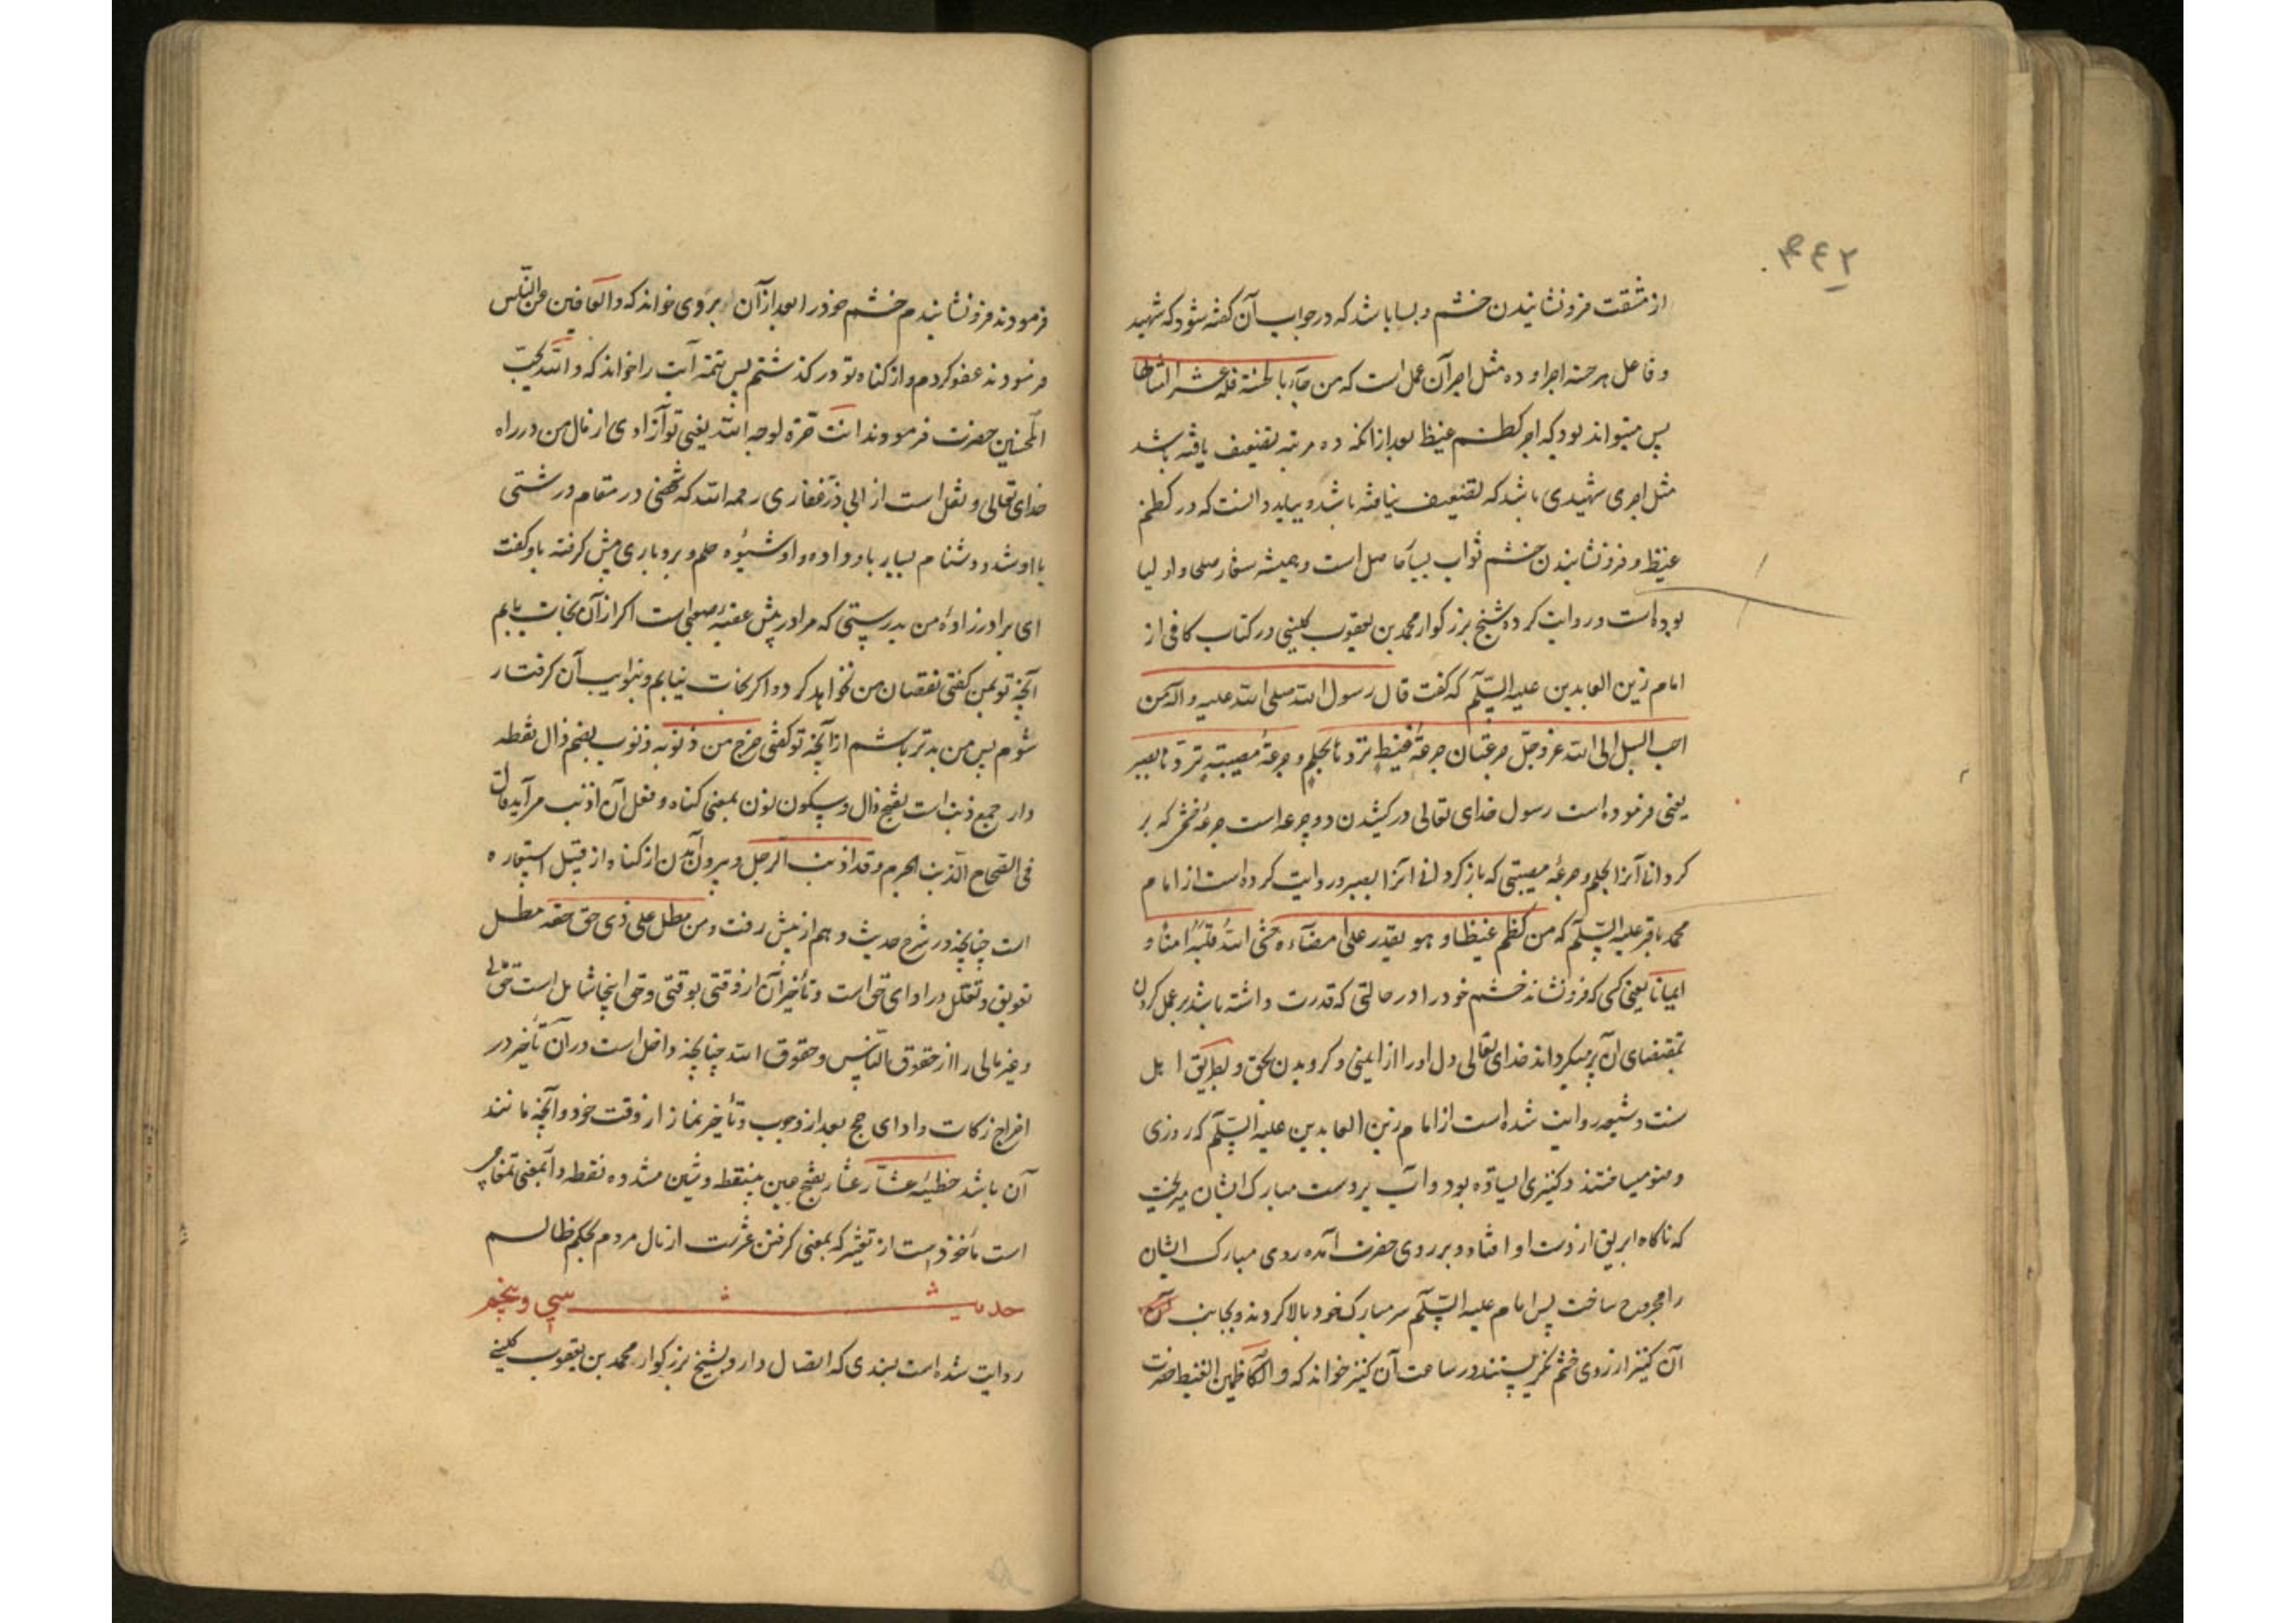 ۴۴۲
از مشقت فرونشانیدن خشم و بسا باشد که در جواب آن گفته شود که شهید
و فاعل هر حسنه اجر او ده مثل اجر آن عمل است که من جآء بالحسنة فله عشر امثالها
پس میتواند بود که اجر کظم غیظ بعد از آنکه ده مرتبه تضعیف یافته باشد
مثل اجری شهیدی باشد که تضعیف نیافته باشد و بباید دانست که در کظم
غیظ و فرونشانیدن خشم ثواب بسیار حاصل است و همیشه شعار صلحا و اولیا
بوده است و روایت کرده شیخ بزرگوار محمد بن یعقوب کلینی در کتاب کافی از
امام زین العابدین علیه السّلم که گفت قال رسول الله صلی الله علیه و آله من
احب السبل الی الله عزوجلّ جرعتان جرعة غیظ تردّها بحلم و جرعة مصیبة تردّها بصبر
یعنی فرموده است رسول خدای تعالی در کشیدن دو جرعه است جرعهٔ خشمی که بر
کردانی آنرا بحلم و جرعهٔ مصیبتی که باز کردانی آنرا بصبر و روایت کرده است از امام
محمد باقر علیه السّلم که من کظم غیظا و هو یقدر علی امضآءه حشی الله قلبه امنا و
ایمانا یعنی کسی که فرونشاند خشم خود را در حالتی که قدرت داشته باشد بر عمل کردن
بمقتضای آن پر میکرداند خدای تعالی دل او را از ایمنی و کرویدن بحق و بطریق اهل
سنت و شیعه روایت شده است از امام زین العابدین علیه السّلم که روزی
وضو میساختند و کنیزی ایستاده بود و آب بر دست مبارک ایشان میریخت
که ناکاه ابریق از دست او افتاده و بر روی حضرت آمده روی مبارک ایشان
را مجروح ساخت پس امام علیه السّلم سر مبارک خود بالا کردند و بجانب
آن کنیز از روی خشم نکریستند در ساعت آن کنیز خواند که و الکاظمین الغیظ حضرت
فرمودند فرونشانیدم خشم خود را بعد از آن بر وی خواند که و العافین عن النّاس
فرمودند عفو کردم و از کناه تو در کذشتم پس تتمه آیت را خواند که و الله یحبّ
المحسنین حضرت فرمودند انت حرّة لوجه الله یعنی تو آزادی از مال من در راه
خدای تعالی و نقل است از ابی ذرّ غفاری رحمه الله که شخصی در مقام درشتی
با او شد و دشنام بسیار باو داده و او شیوه حلم و بردباری پیش کرفته باو کفت
ای برادرزادهٔ من بدرستی که مرا در پیش عقبهٔ صعبی است اکر از آن نجات یابم
آنچه تو بمن کفتی نقصان من نخواهد کرد و اکر نجات نیابم و بنوایب آن کرفتار
شوم پس من بدتر باشم از آنچه تو کفتی خرج من ذنوبه ذنوب بضم ذال نقطه
دار جمع ذنب است بفتح ذال و سکون نون بمعنی کناه و فعل آن اذنب می آید قال
فی الصّحاح الذّنب الجرم و قد اذنب الرجل و بیرون آمدن از کناه از قبیل استعاره
است چنانچه در شرح حدیث و هم از پیش رفت و من مطل علی ذی حق حقه مطل
تعویق و تعلّل در ادای حق است و تأخیر آن از وقتی بوقتی و حق اینجا شامل است مالی
و غیر مالی را از حقوق النّاس و حقوق الله چنانچه داخل است در آن تأخیر در
اخراج زکات و ادای حج بعد از وجوب و تأخیر نماز از وقت خود و آنچه مانند
آن باشد خطیئه عشّار عشّار بفتح عین بینقطه و شین مشدده نقطه دار بمعنی تمغاچی
است مأخوذ است از تعشیر که بمعنی کرفتن عشرست از مال مردم بحکم ظالم
حدیث سی و پنجم
روایت شده است بسندی که اتصال دارد بشیخ بزرکوار محمد بن یعقوب کلینی